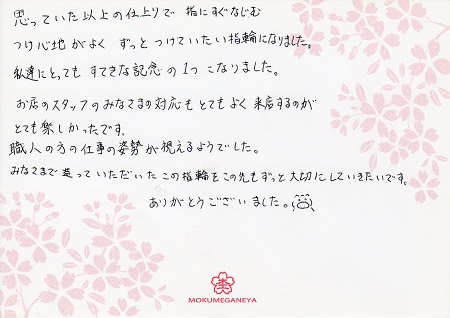 思っていた以上の仕上りで 指にすぐなじむ
つけ心地がよく ずっとつけていたい指輪になりました。
私達にとっても すてきな記念の1つになりました。
お店のスタッフのみなさまの対応もとてもよく 来店するのが
とても楽しかったです。
職人の方の仕事の姿勢が視えるようでした。
みなさまで造っていただいた この指輪をこの先もずっと大切にしていきたいです。
ありがとうございました。
MOKUMEGANEYA